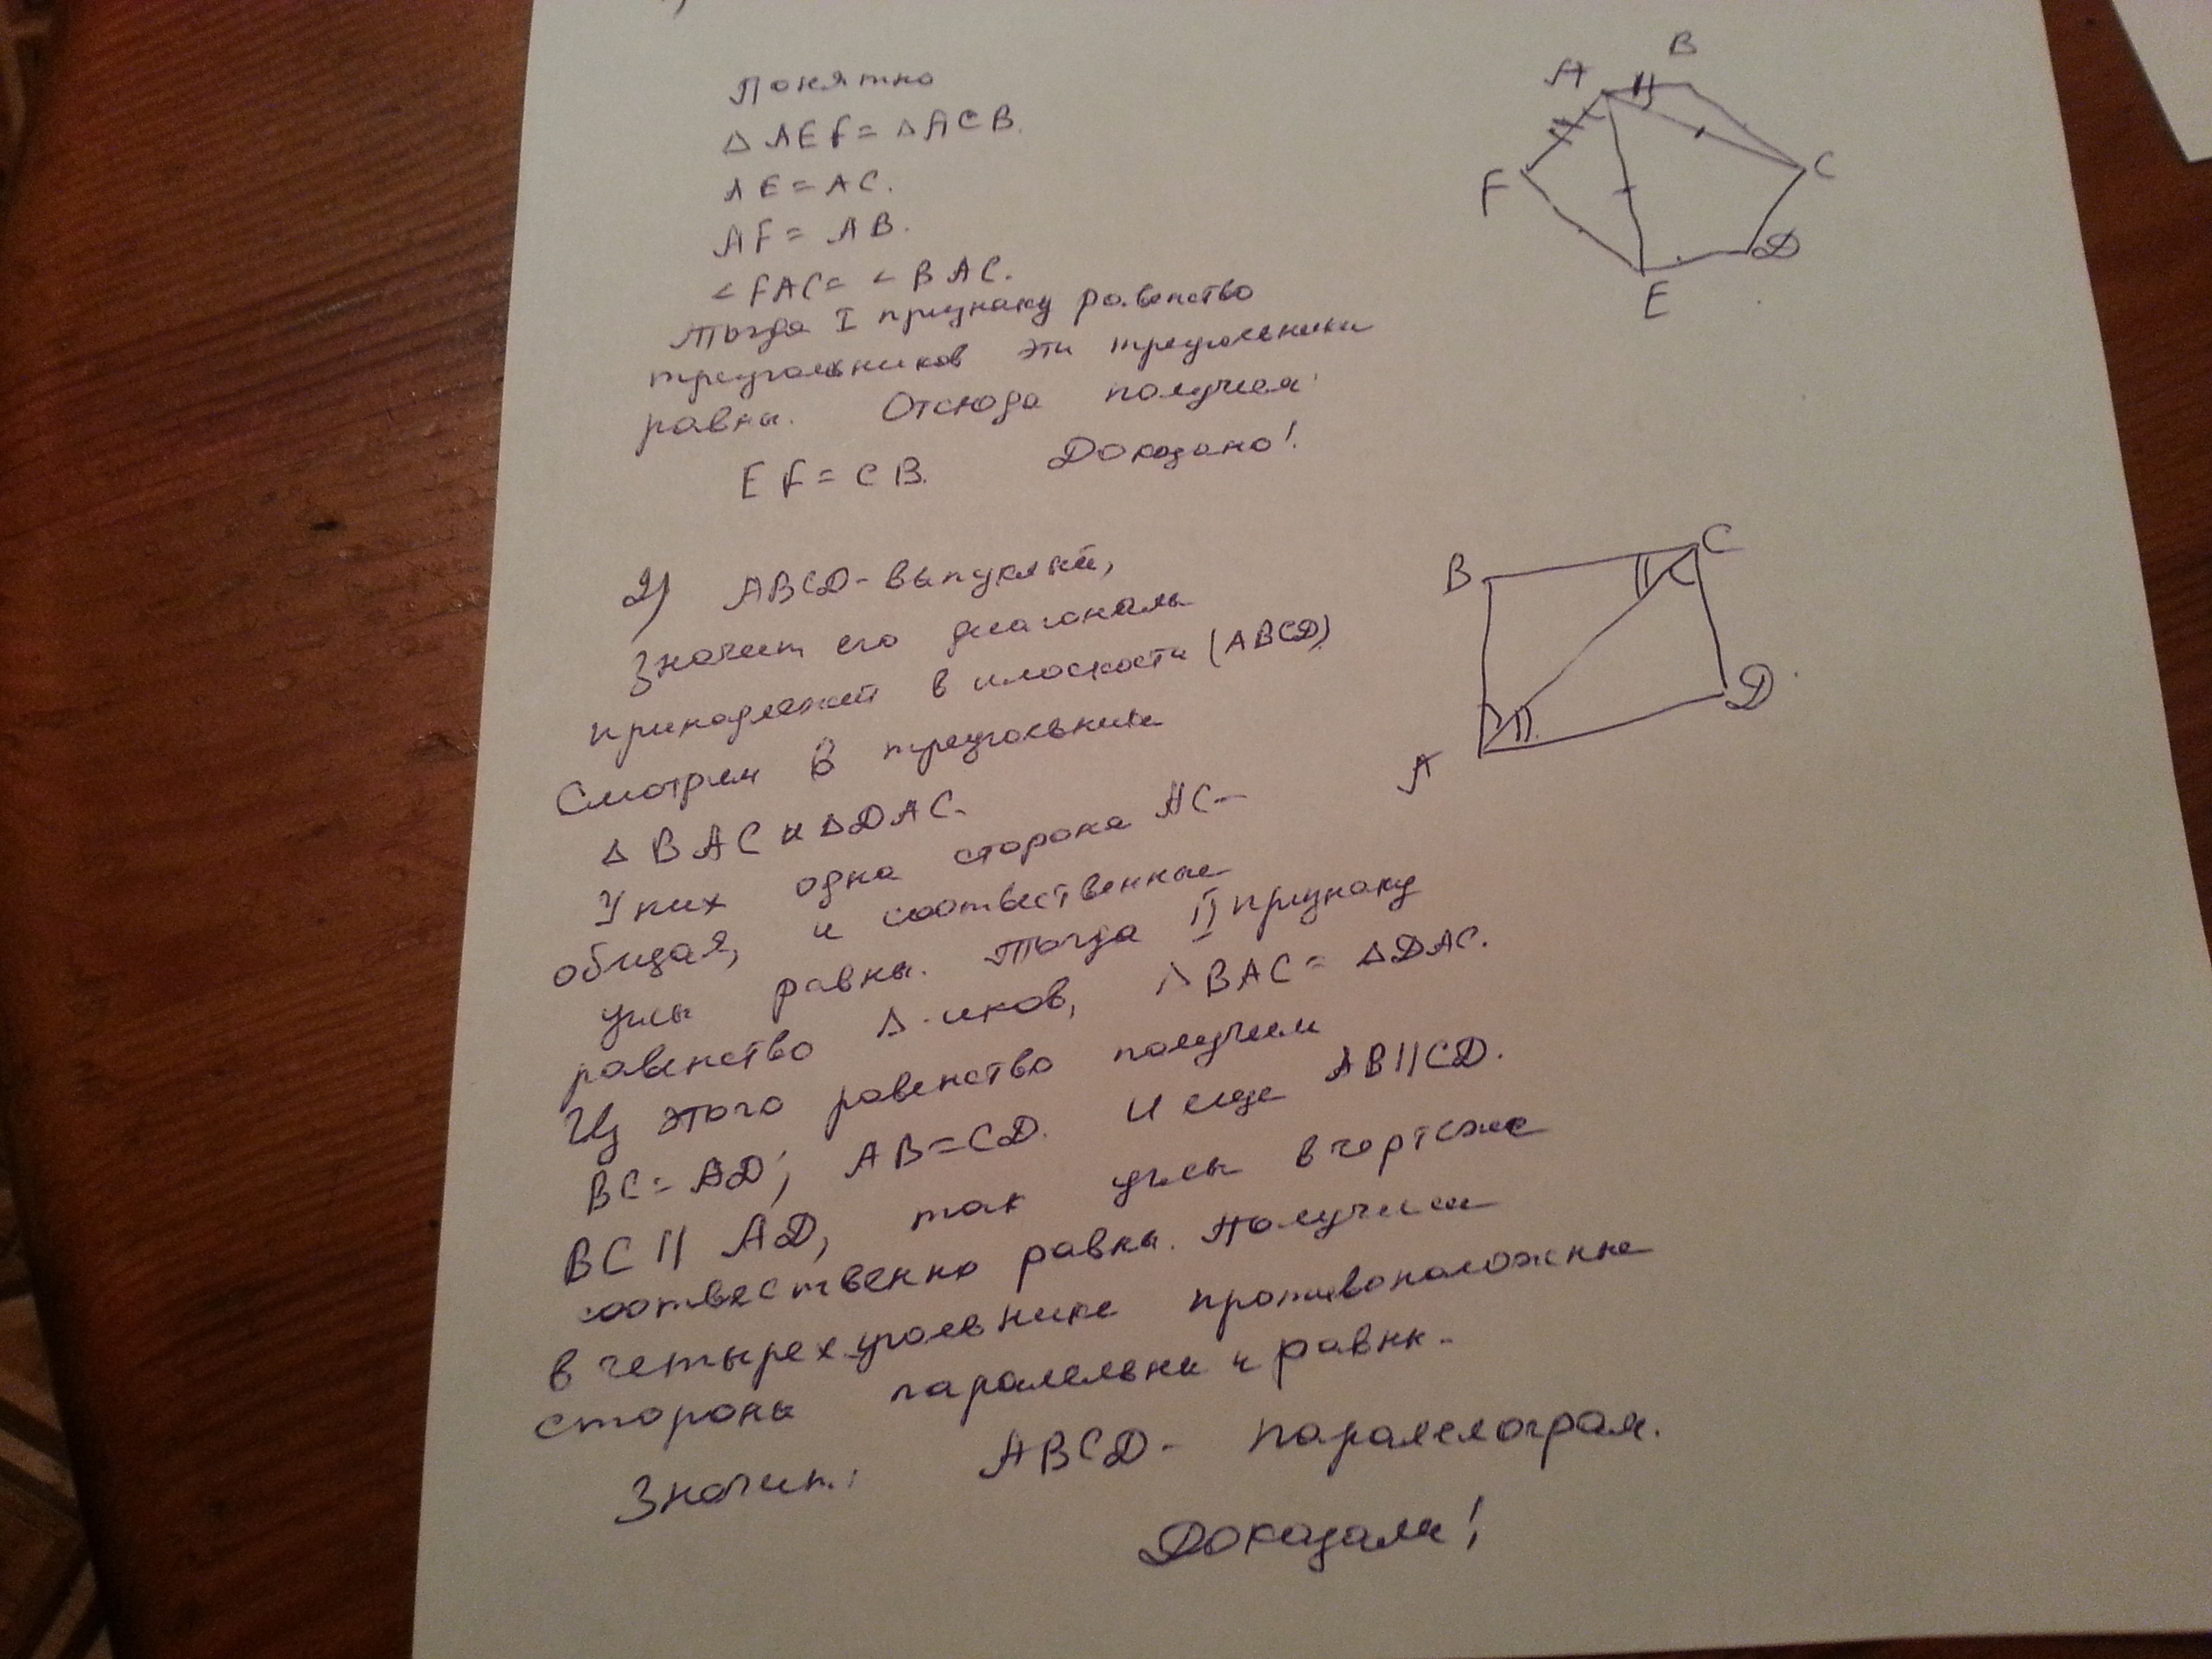 Понятно
Δ AEF = Δ ACB.
AE = AC.
AF = AB.
∠FAC = ∠BAC.
Тогда I признаку равенство
треугольников эти треугольники
равны. Отсюда получием
EF = CB. Доказано!
A
B
C
D
E
F
2) ABCD - выпуклый,
Значит его диагональ
принадлежит в плоскости (ABCD)
Смотрем в треугольники
Δ BAC и Δ DAC.
У них одна сторона AC -
общая, и соотвественные
углы равны. Тогда II признаку
равенство Δ-иков, Δ BAC = Δ DAC.
Из этого равенство получем
BC = AD; AB = CD. И еще AB || CD.
BC || AD, так углы в чертеже
соотвественно равны. Получием
в четырехугольнике противоположные
стороны паралельны и равны.
Значит: ABCD - паралелограм.
Доказали!
B
C
D
A